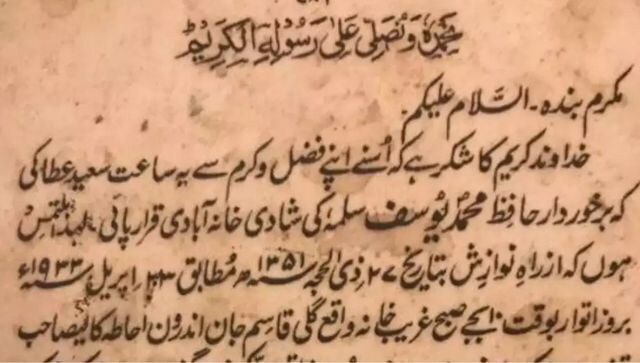 نحمدہٗ ونصلی علیٰ رسولہٖ الکریم
مکرم بندہ ۔ السّلام علیکم ۔
خداوند کریم کا شکر ہے کہ اُسنے اپنے فضل و کرم سے یہ ساعت سعید عطا کی
کہ برخوردار حافظ محمد یوسف سلمہٗ کی شادی خانہ آبادی قرار پائی لہٰذا ملتمس
ہوں کہ از راہِ نوازش بتاریخ ۲۷ ذی الحجہ سنہ ۱۳۵۱ھ مُطابق ۲۳ اپریل سنہ ۱۹۳۳ء
بروز اتوار بوقت ۱۰ بجے صبح غریب خانہ واقع گلی قاسم جان اندرون احاطہ کالیصاحب